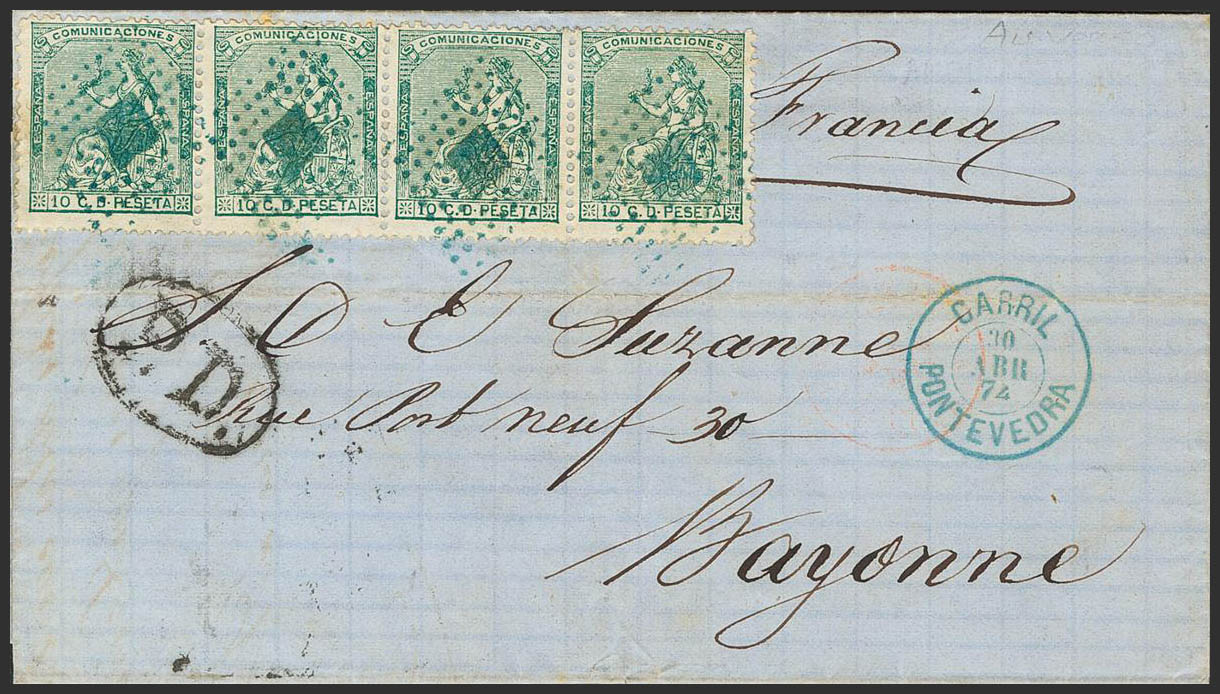 COMUNICACIONES COMUNICACIONES COMUNICACIONES COMUNICACIONES
ESPAÑA ESPAÑA ESPAÑA ESPAÑA ESPAÑA ESPAÑA ESPAÑA ESPAÑA
10 C. D. PESETA 10 C. D. PESETA 10 C. D. PESETA 10 C. D. PESETA
Francia
P. D.
S. D E Suzanne
Rue Port neuf 30
Bayonne
CARRIL
30
ABR
74
PONTEVEDRA